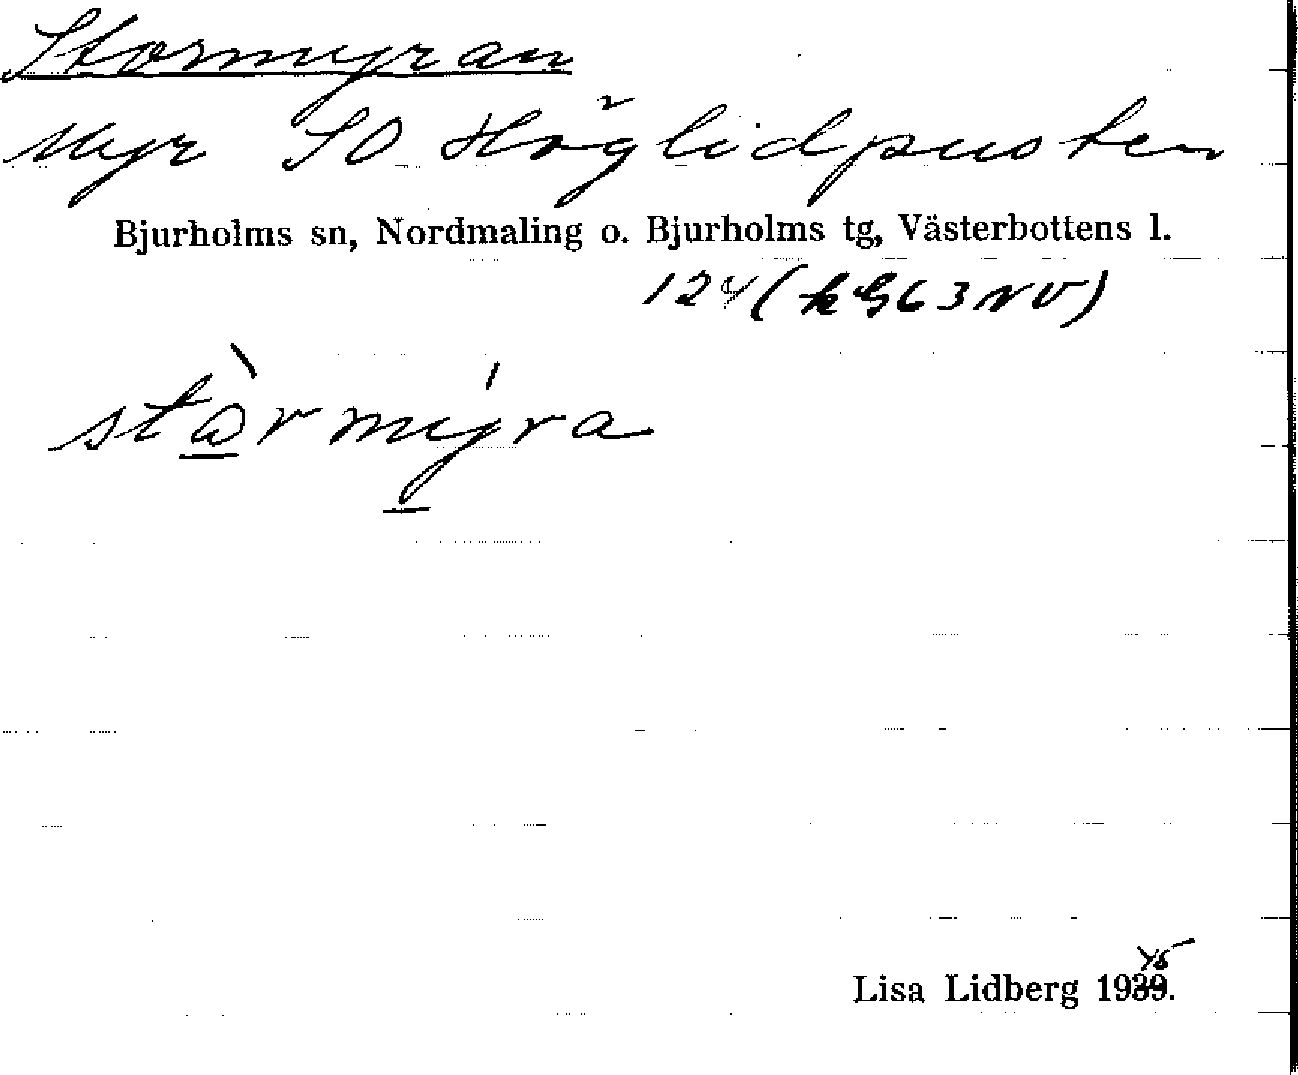 Stormyran
Myr SO Höglidpusten
Bjurholms sn, Nordmaling o. Bjurholms tg, Västerbottens l.
124 (kG63NV)
stàrmýra
Lisa Lidberg 1945.